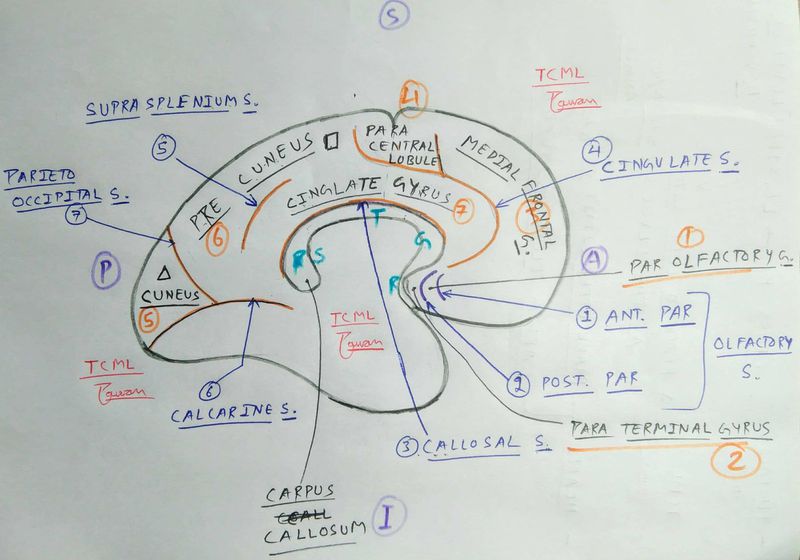 S
TCML
Pawan
SUPRA SPLENIUM S.
5
4
PARA
CENTRAL
LOBULE
PRE CUNEUS
6
MEDIAL FRONTAL
G.
4
CINGULATE S.
PARIETO
OCCIPITAL S.
7
CINGLATE GYRUS
7
T
G
R
S
P
A
1
PAR OLFACTORY G.
CUNEUS
5
R
1 ANT. PAR
2 POST. PAR
OLFACTORY
S.
TCML
Pawan
TCML
Pawan
6
CALCARINE S.
PARA TERMINAL GYRUS
2
3 CALLOSAL S.
CARPUS
CALLOSUM
I